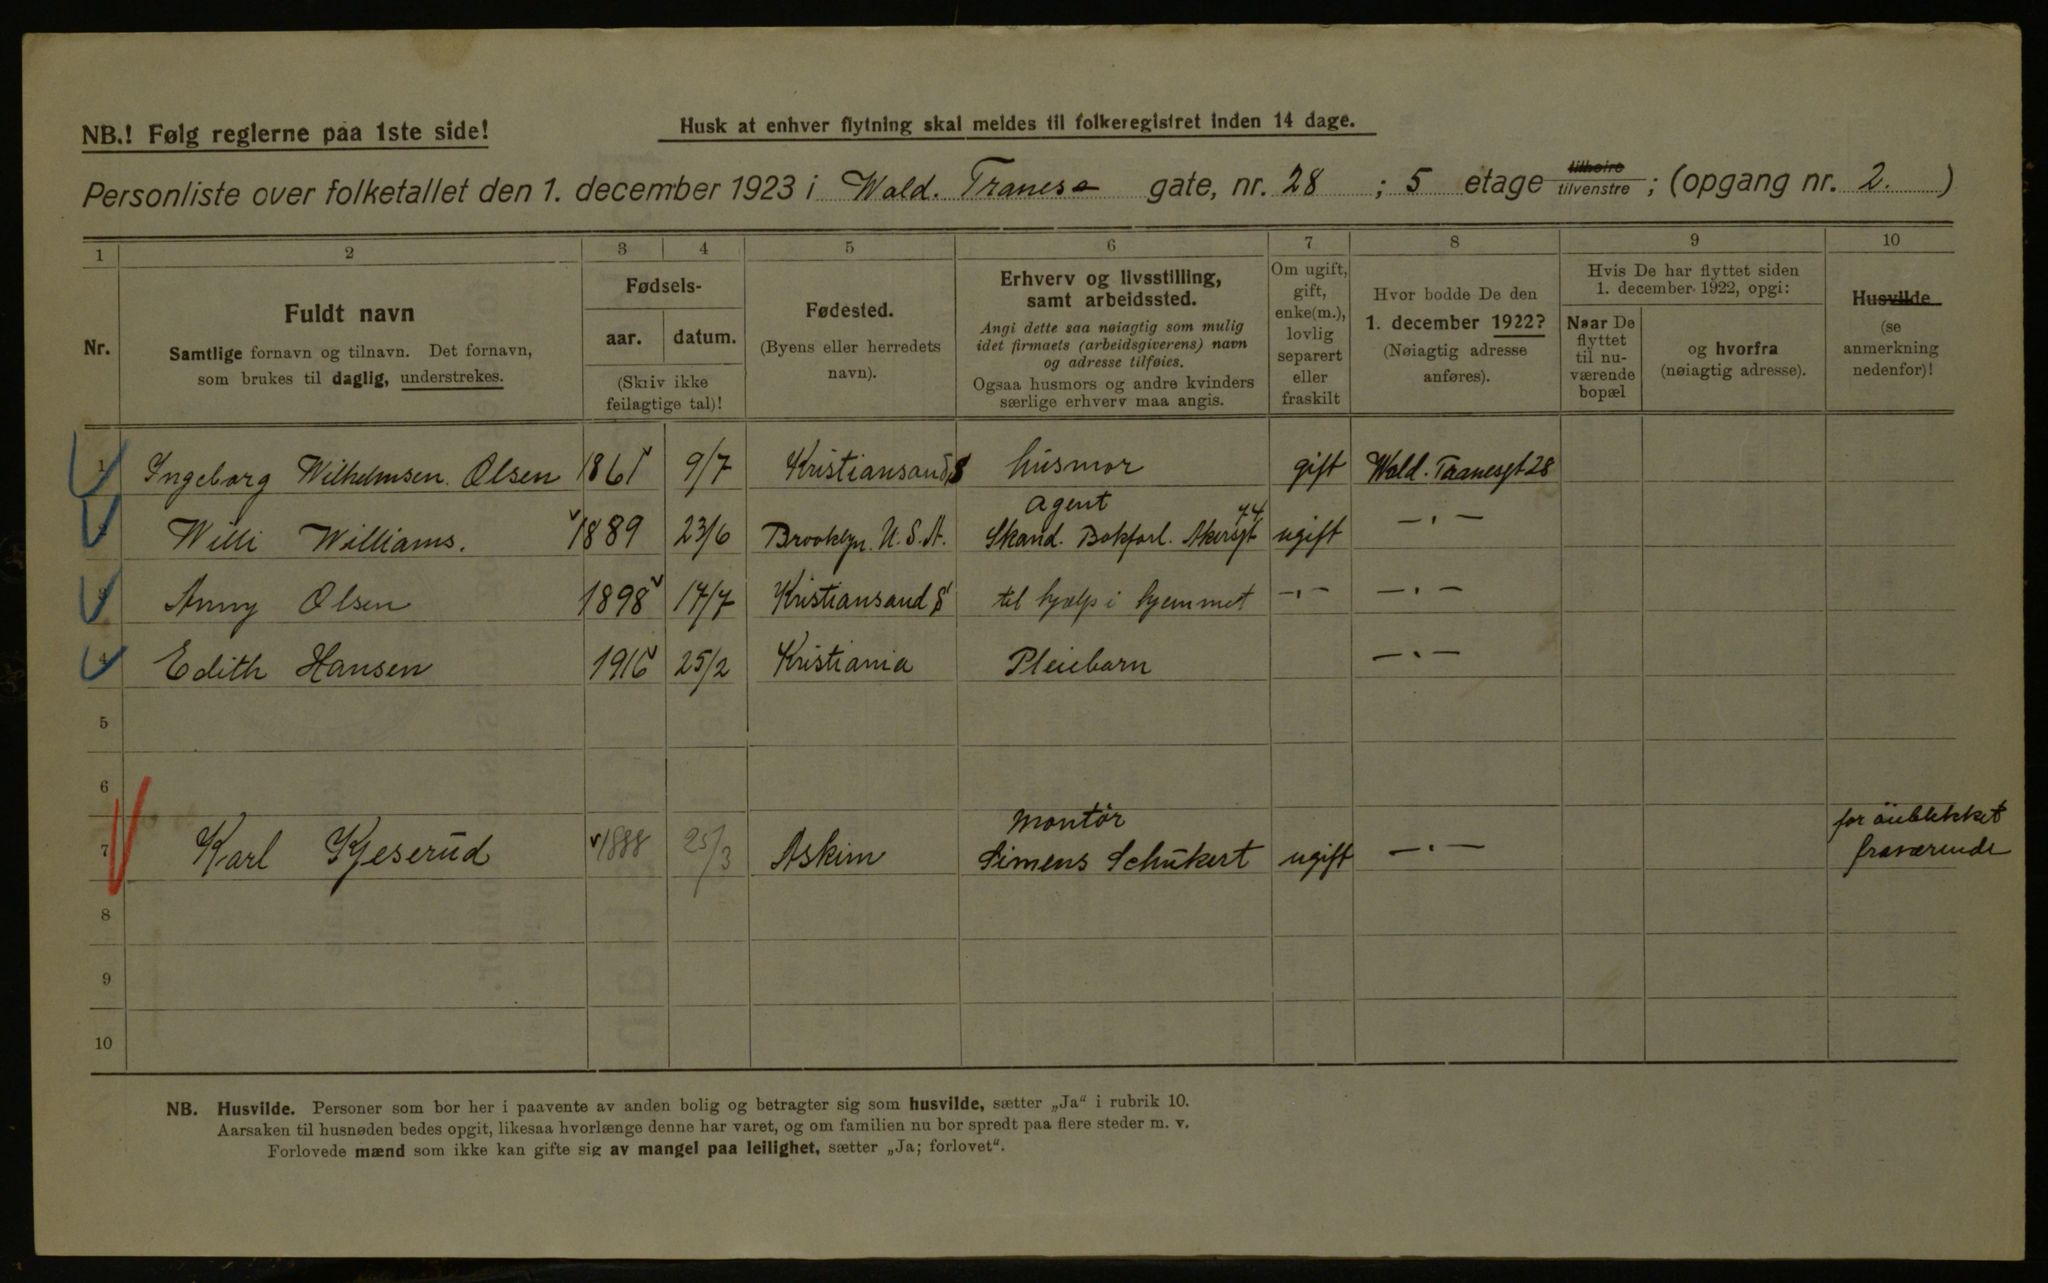 NB.! Følg reglerne paa 1ste side!
Husk at enhver flytning skal meldes til folkeregistret inden 14 dage.
Personliste over folketallet den 1. december 1923 i Wald. Tranes gate, nr. 28 ; 5 etage tilhøire tilvenstre ; (opgang nr. 2. )
1 2 3 4 5 6 7 8 9 10
Nr.
Fuldt navn
Samtlige fornavn og tilnavn. Det fornavn,
som brukes til daglig, understrekes.
Fødsels-
aar. datum.
(Skriv ikke
feilagtige tal)!
Fødested.
(Byens eller herredets
navn).
Erhverv og livsstilling,
samt arbeidssted.
Angi dette saa nøiagtig som mulig
idet firmaets (arbeidsgiverens) navn
og adresse tilføies.
Ogsaa husmors og andre kvinders
særlige erhverv maa angis.
Om ugift,
gift,
enke(m.),
lovlig
separert
eller
fraskilt
Hvor bodde De den
1. december 1922?
(Nøiagtig adresse
anføres).
Hvis De har flyttet siden
1. december 1922, opgi:
Naar De
flyttet
til nu-
værende
bopæl
og hvorfra
(nøiagtig adresse).
Husvilde
(se
anmerkning
nedenfor)!
1 Ingeborg Wilhelmsen Olsen 1861 9/7 Kristiansand S husmor gift Wald. Tranesgt 28
2 Willi Williams. 1889 23/6 Brooklyn. U.S.A. Agent Skand. Bokforl. Akersgt 74 ugift —"—
3 Anny Olsen 1898 17/7 Kristiansand S til hjælp i hjemmet —"— —"—
4 Edith Hansen 1916 25/2 Kristiania Pleiebarn —"—
5
6
7 Karl Kjeserud 1888 25/3 Askim Montör Simens Schukert ugift —"— for öieblikket fraværende
8
9
10
NB. Husvilde. Personer som bor her i paavente av anden bolig og betragter sig som husvilde, sætter „Ja" i rubrik 10.
Aarsaken til husnøden bedes opgit, likesaa hvorlænge denne har varet, og om familien nu bor spredt paa flere steder m. v.
Forlovede mænd som ikke kan gifte sig av mangel paa leilighet, sætter „Ja; forlovet".